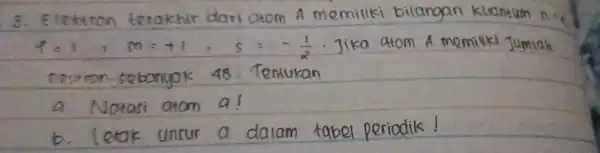 3. Elektron terakhir dari atom A memiliki bilangan kuantum n =
l = 1 , m = +1 , s = - 1/2 . Jika atom A memiliki Jumlah
neutron sebanyak 48. Tentukan
a Notasi atom a!
b. letak unsur a dalam tabel periodik !